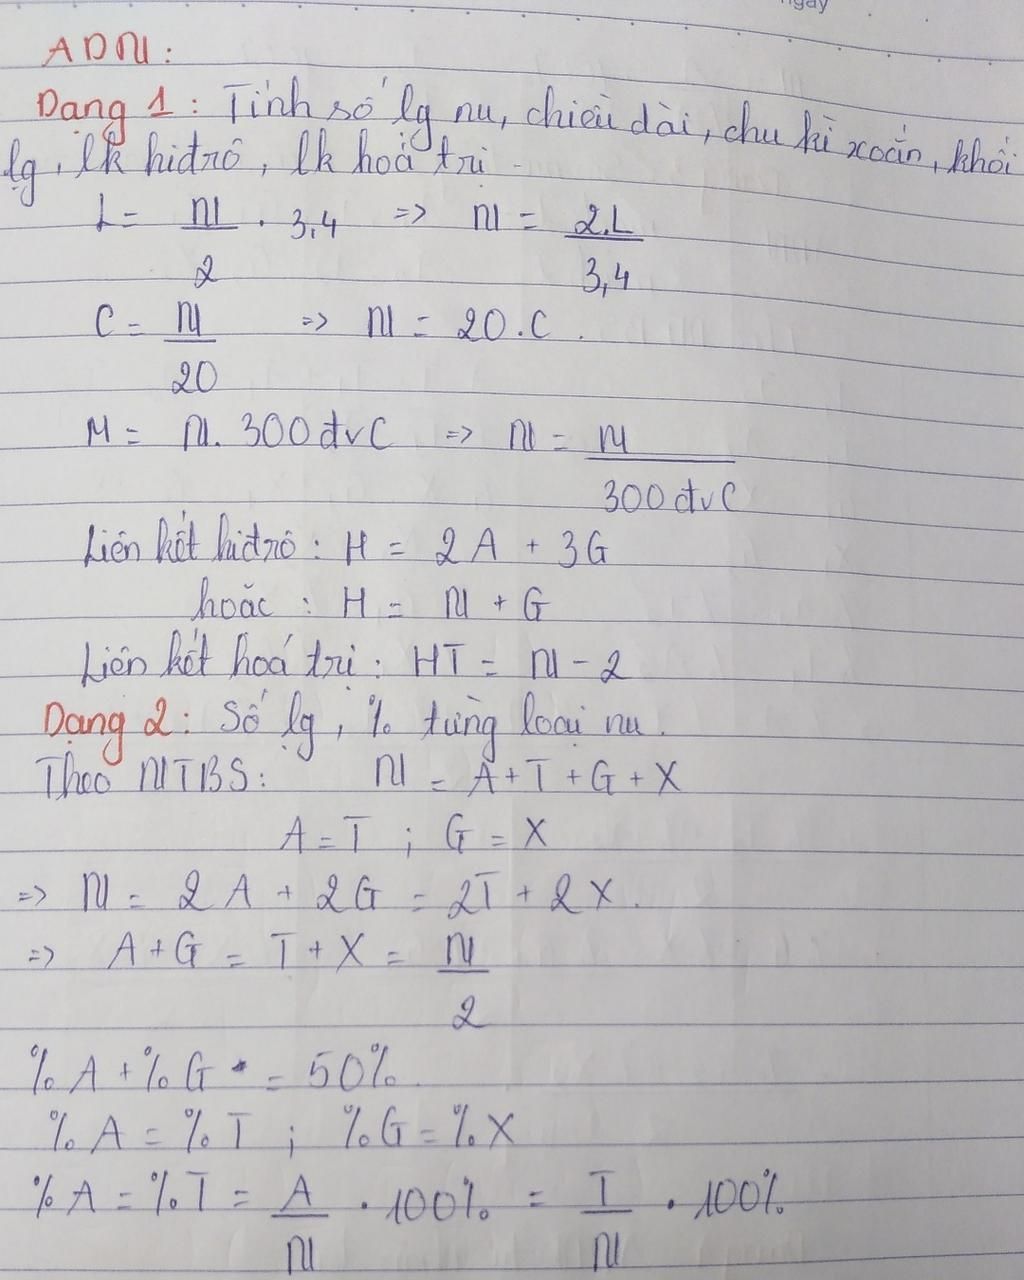 ngày
ADN:
Dạng 1: Tính số lg nu, chiều dài, chu kì xoắn, khối
lg, lk hiđrô, lk hoá trị.
L = N/2 . 3,4 => N = 2.L/3,4
C = N/20 => N = 20.C.
M = N. 300đvC => N = M/300đvC
Liên kết hiđrô: H = 2A + 3G
hoặc: H = N + G
Liên kết hoá trị: HT = N - 2
Dạng 2: Số lg, % từng loại nu.
Theo NTBS: N = A+T+G+X
A = T ; G = X
=> N = 2A + 2G = 2T + 2X.
=> A+G = T+X = N/2
%A + %G = 50%.
%A = %T ; %G = %X
%A = %T = A/N . 100% = T/N . 100%